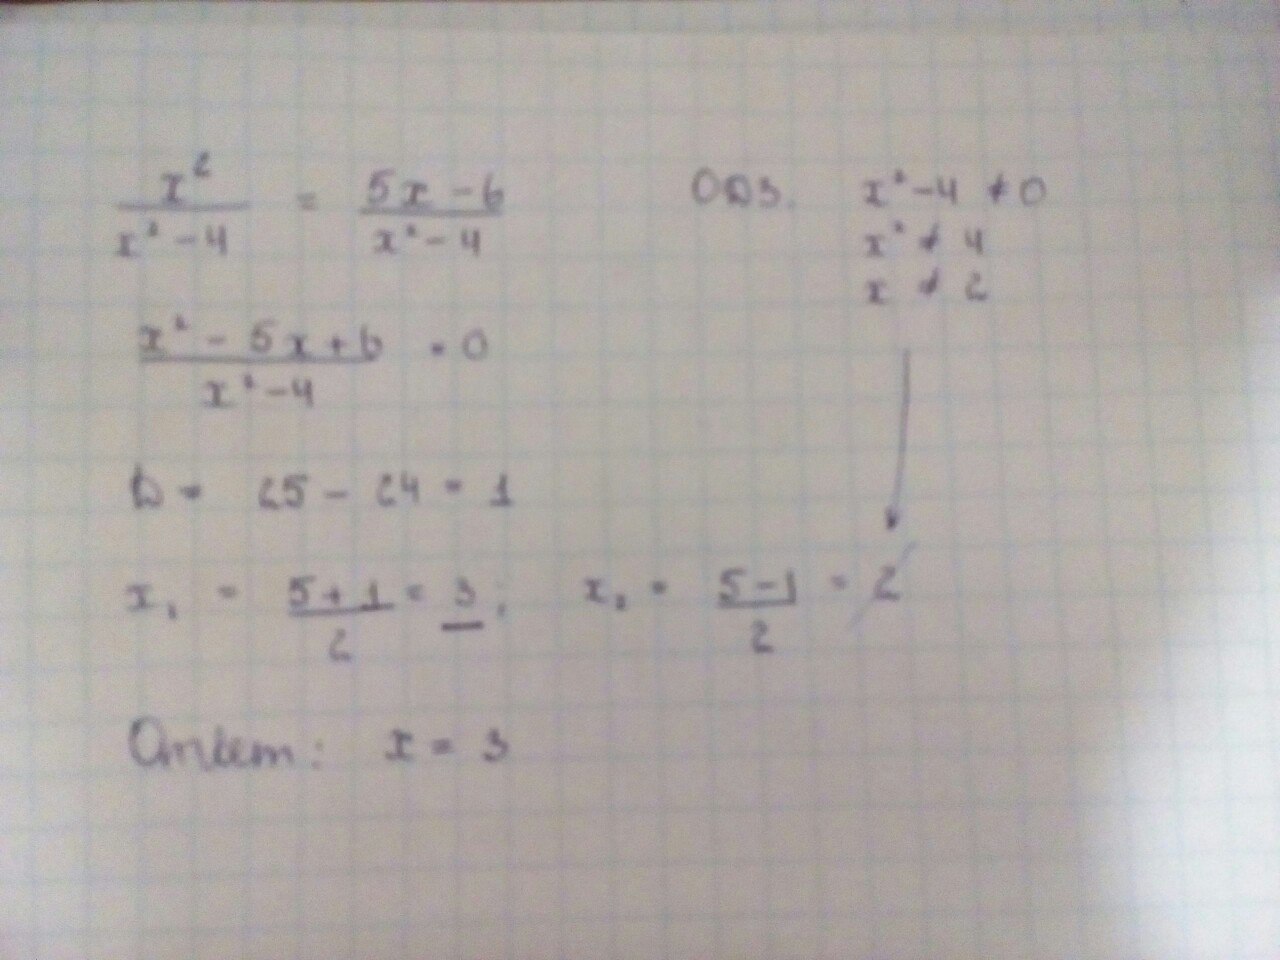 x² / (x² - 4) = (5x - 6) / (x² - 4)
ОДЗ. x² - 4 ≠ 0
x² ≠ 4
x ≠ 2
(x² - 5x + 6) / (x² - 4) = 0
D = 25 - 24 = 1
x₁ = (5 + 1) / 2 = 3; x₂ = (5 - 1) / 2 = 2
Ответ: x = 3